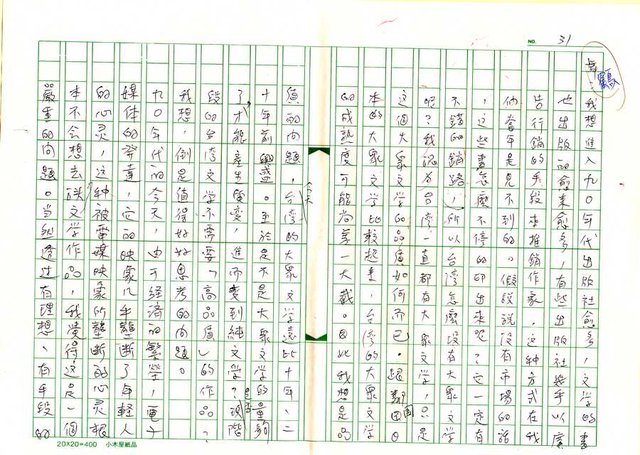 NO. 31
我想進入九○年代出版社愈多，文學的
也出版的愈來愈多，有些出版社幾乎以
行銷的手段來推銷作家，這種方式在我
們當年是見不到的。假設說沒有市場的話
，這些書怎麼不停的印出來呢？這一定有
不錯的銷路，所以台灣怎麼沒有大眾文學
呢？我認為台灣一直都有大眾文學，只是
這個大眾文學品質如何而已。跟
本的大眾文學比較起來，台灣的大眾文學
的成熟度可能尚差一大截。因此我想是
值的問題，台灣的大眾文學遠比十年、二
十年前。至於是不是大眾文學的量夠
了，才能產生質變，進而變到純文學？階
段的台灣文學需要「高品質」的作品？
我想，倒是值得好好思考的問題。
九○年代的今天，由於經濟的繁榮，電子
媒體的發達，它的映象幾乎壟斷了年輕人
的心灵，這種被電媒映象所壟斷的心灵根
本不会想去談文學作品，我覺得這是一個
嚴重的问題。當然透过有理想、有手段的
20X20=400 小木屋紙品